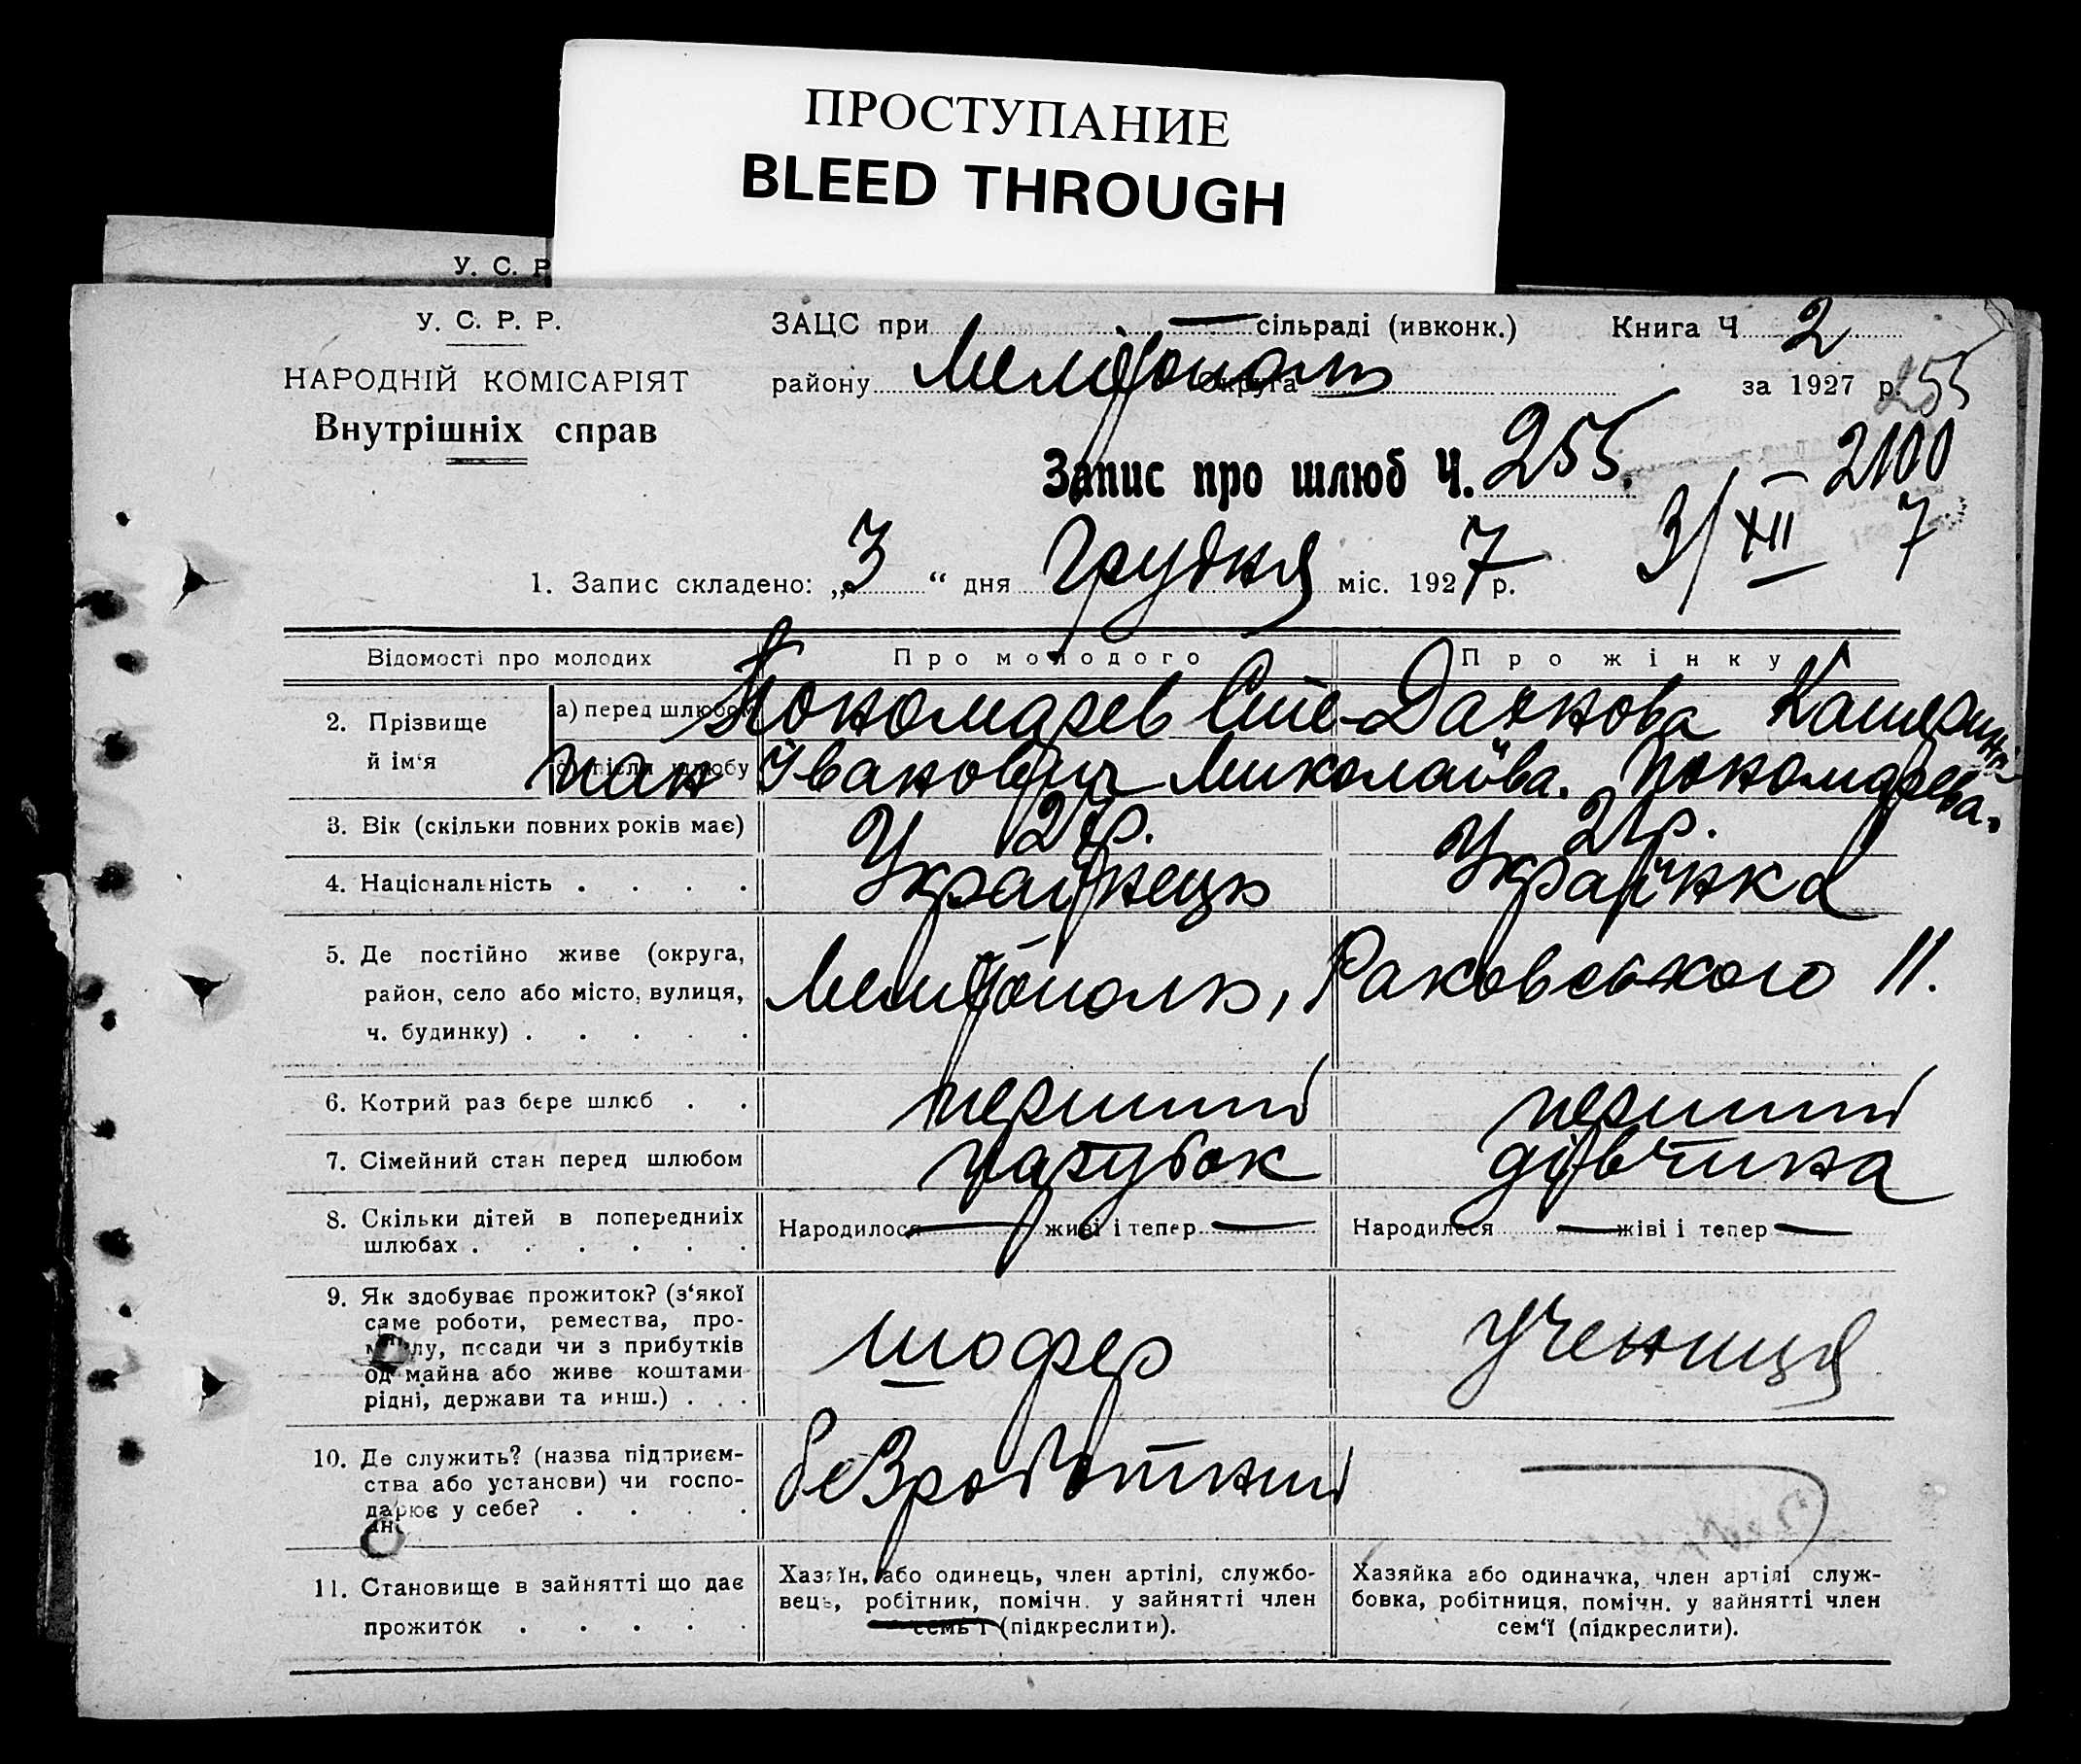 ПРОСТУПАНИЕ
BLEED THROUGH
У. С. Р
У. С. Р. Р.
НАРОДНІЙ КОМІСАРІЯТ
Внутрішніх справ
ЗАЦС при — сільраді (ивконк.) Книга Ч 2
району Мелітополь Округа за 1927 р. 255
Запис про шлюб Ч. 255.
— 2100
3/XII 7
1. Запис складено: „3“ дня Грудня міс. 1927 р.
Відомості про молодих Про молодого Про жінку
2. Прізвище й ім‘я
а) перед шлюбом Пономарев Сте- Дачкова Катерина
після шлюбу пан Іванович Миколаївa. Пономарева.
3. Вік (скільки повних років має) 21р.
4. Національність . . . . Українець Українка
5. Де постійно живе (округа,
район, село або місто, вулиця,
ч. будинку) . . . . .
Мелітополь, Раковського 11.
6. Котрий раз бере шлюб . . перший перший
7. Сімейний стан перед шлюбом парубок дівчина
8. Скільки дітей в попередниіх
шлюбах . . . . . .
Народилося — живі і тепер — Народилося — жіві і тепер —
9. Як здобуває прожиток? (з‘якої
саме роботи, ремества, про-
лу, посади чи з прибутків
од майна або живе коштами
рідні, держави та инш.) . . .
шофер учениця
10. Де служить? (назва підприєм-
ства або установи) чи госпо-
дарює у себе? . . . .
безроботний —
11. Становище в зайнятті що дає
прожиток . . . . .
Хазяїн, або одинець, член артілі, службо-
вець, робітник, помічн. у зайнятті член
семь‘ї (підкреслити).
Хазяйка або одиначка, член артілі служ-
бовка, робітниця, помічн. у зайнятті член
сем‘ї (підкреслити).